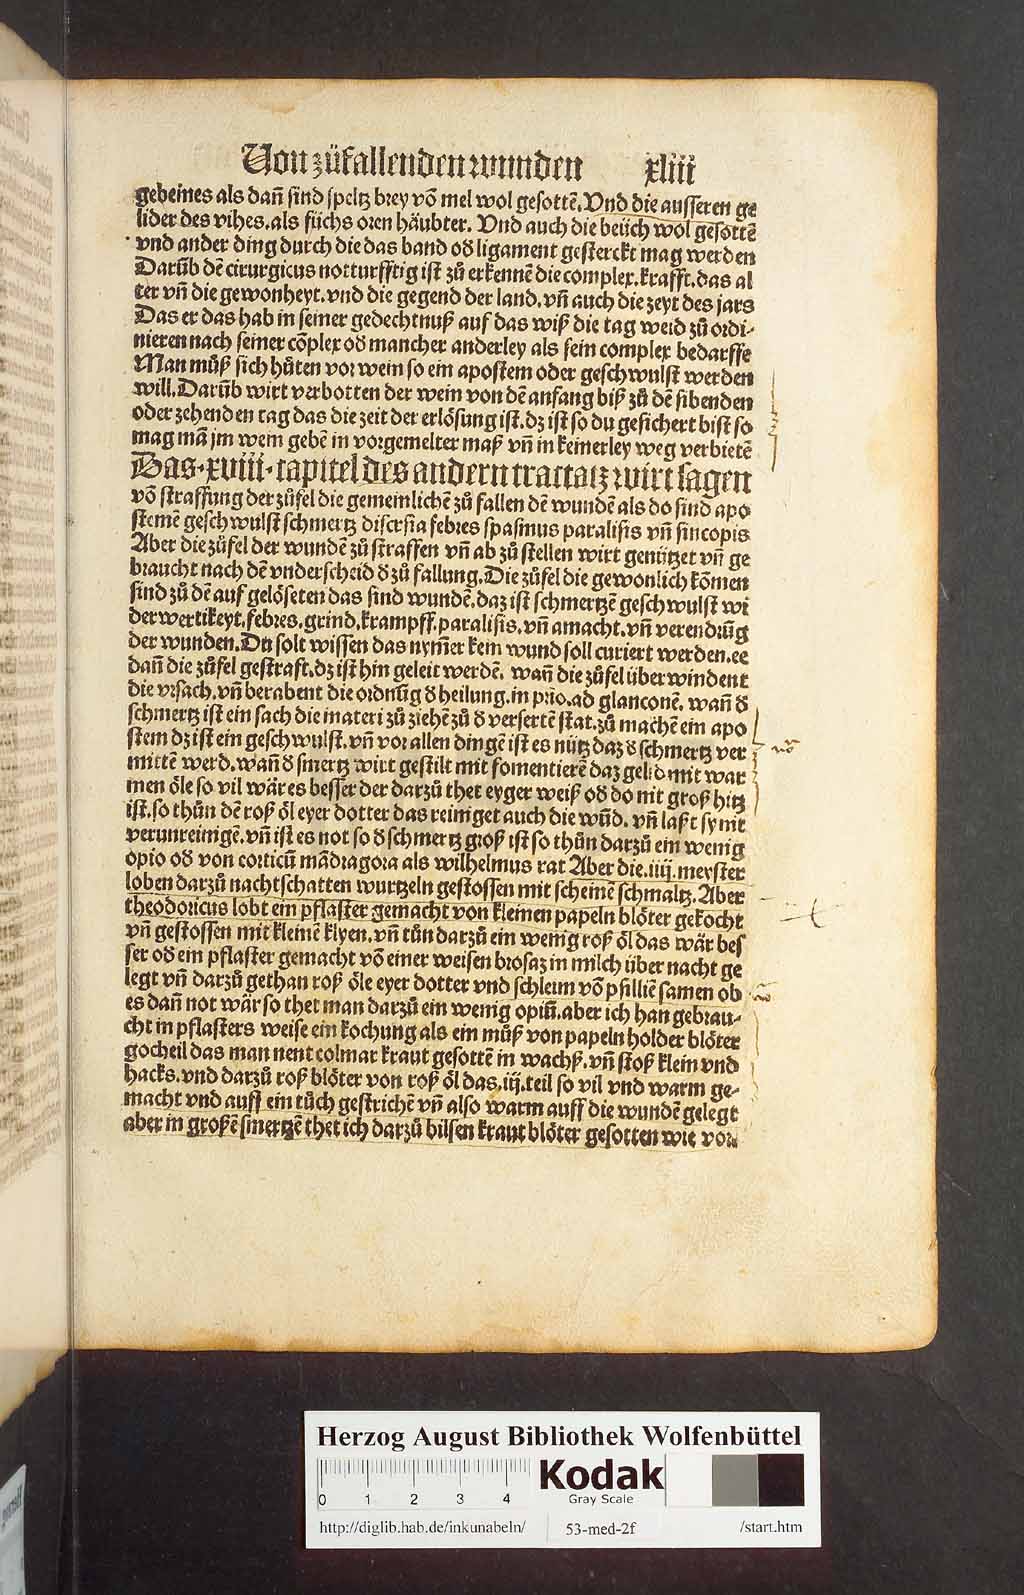 Von zůfallenden wunden xliii
gebeines als dañ sind speltz brey võ mel wol gesottẽ. Vnd die ausseren ge
lider des vihes. als füchs oren häubter. Vnd auch die beüch wol gesottẽ
vnd ander ding durch die das band oð ligament gesterckt mag werden
Darũb dẽ cirurgicus notturfftig ist zů erkennẽ die complex. krafft. das al
ter vñ die gewonheyt. vnd die gegend der land. vñ auch die zeyt des jars
Das er das hab in seiner gedechtnuß auf das wiß die tag weid zů ordi-
nieren nach seiner cõplex oð mancher anderley als sein complex bedarffe
Man můß sich hůten vor wein so ein apostem oder geschwulst werden
will. Darũb wirt verbotten der wein von dẽ anfang biß zů dẽ sibenden
oder zehenden tag das die zeit der erlösung ist. dz ist so du gesichert bist so
mag mã jm wein gebẽ in vorgemelter maß vñ in keinerley weg verbietẽ
Das .xviii. capitel des andern tractatz wirt sagen
võ straffung der zůfel die gemeinlichẽ zů fallen dẽ wundẽ als do sind apo
stemẽ geschwulst schmertz discrsia febres spasmus paralisis vñ sincopis
Aber die zůfel der wundẽ zů straffen vñ ab zů stellen wirt genützet vñ ge
braucht nach dẽ vnderscheid ð zů fallung. Die zůfel die gewonlich kõmen
sind zů dẽ auf gelöseten das sind wundẽ. daz ist schmertzẽ geschwulst wi
derwertikeyt. febres. grind. krampff. paralisis. vñ amacht. vñ verendrũg
der wunden. Du solt wissen das nym̃er kein wund soll curiert werden. ee
dañ die zůfel gestraft. dz ist hin geleit werdẽ. wañ die zůfel überwindent
die vrsach. vñ berabent die ordnũg ð heilung. in prio. ad glanconẽ. wañ ð
schmertz ist ein sach die materi zů ziehẽ zů ð versertẽ stat. zů machẽ ein apo
stem dz ist ein geschwulst. vñ vor allen dingẽ ist es nütz daz ð schmertz ver
mittẽ werd. wañ ð smertz wirt gestilt mit fomentierẽ daz gelid mit war
men öle so vil wär es besser der darzů thet eyger weiß oð do nit groß hitz
ist. so thůn dẽ roß öl eyer dotter das reiniget auch die wũd. vñ laßt sy nit
verunreinigẽ. vñ ist es not so ð schmertz groß ist so thůn darzů ein wenig
opio oð von corticũ mãdragora als wilhelmus rat Aber die .iiij. meyster
loben darzů nachtschatten wurtzeln gestossen mit scheinẽ schmaltz. Aber
theodoricus lobt ein pflaster gemacht von kleinen papeln blöter gekocht
vñ gestossen mit kleinẽ klyen. vñ tůn darzů ein wenig roß öl das wär bes
ser oð ein pflaster gemacht võ einer weisen brosaz in milch über nacht ge
legt vñ darzů gethan roß öle eyer dotter vnd schleim võ psilliẽ samen ob
es dañ not wär so thet man darzů ein wenig opiũ. aber ich han gebrau-
cht in pflasters weise ein kochung als ein můß von papeln holder blöter
gocheil das man nent colmar kraut gesottẽ in wachß. vñ stoß klein vnd
hacks. vnd darzů roß blöter von roß öl das .iij. teil so vil vnd warm ge-
macht vnd auff ein tůch gestrichẽ vñ also warm auff die wundẽ gelegt
aber in großẽ smertzẽ thet ich darzů bilsen kraut blöter gesotten wie vor.
Herzog August Bibliothek Wolfenbüttel
0 1 2 3 4 Kodak
Gray Scale
http://diglib.hab.de/inkunabeln/ 53-med-2f /start.htm